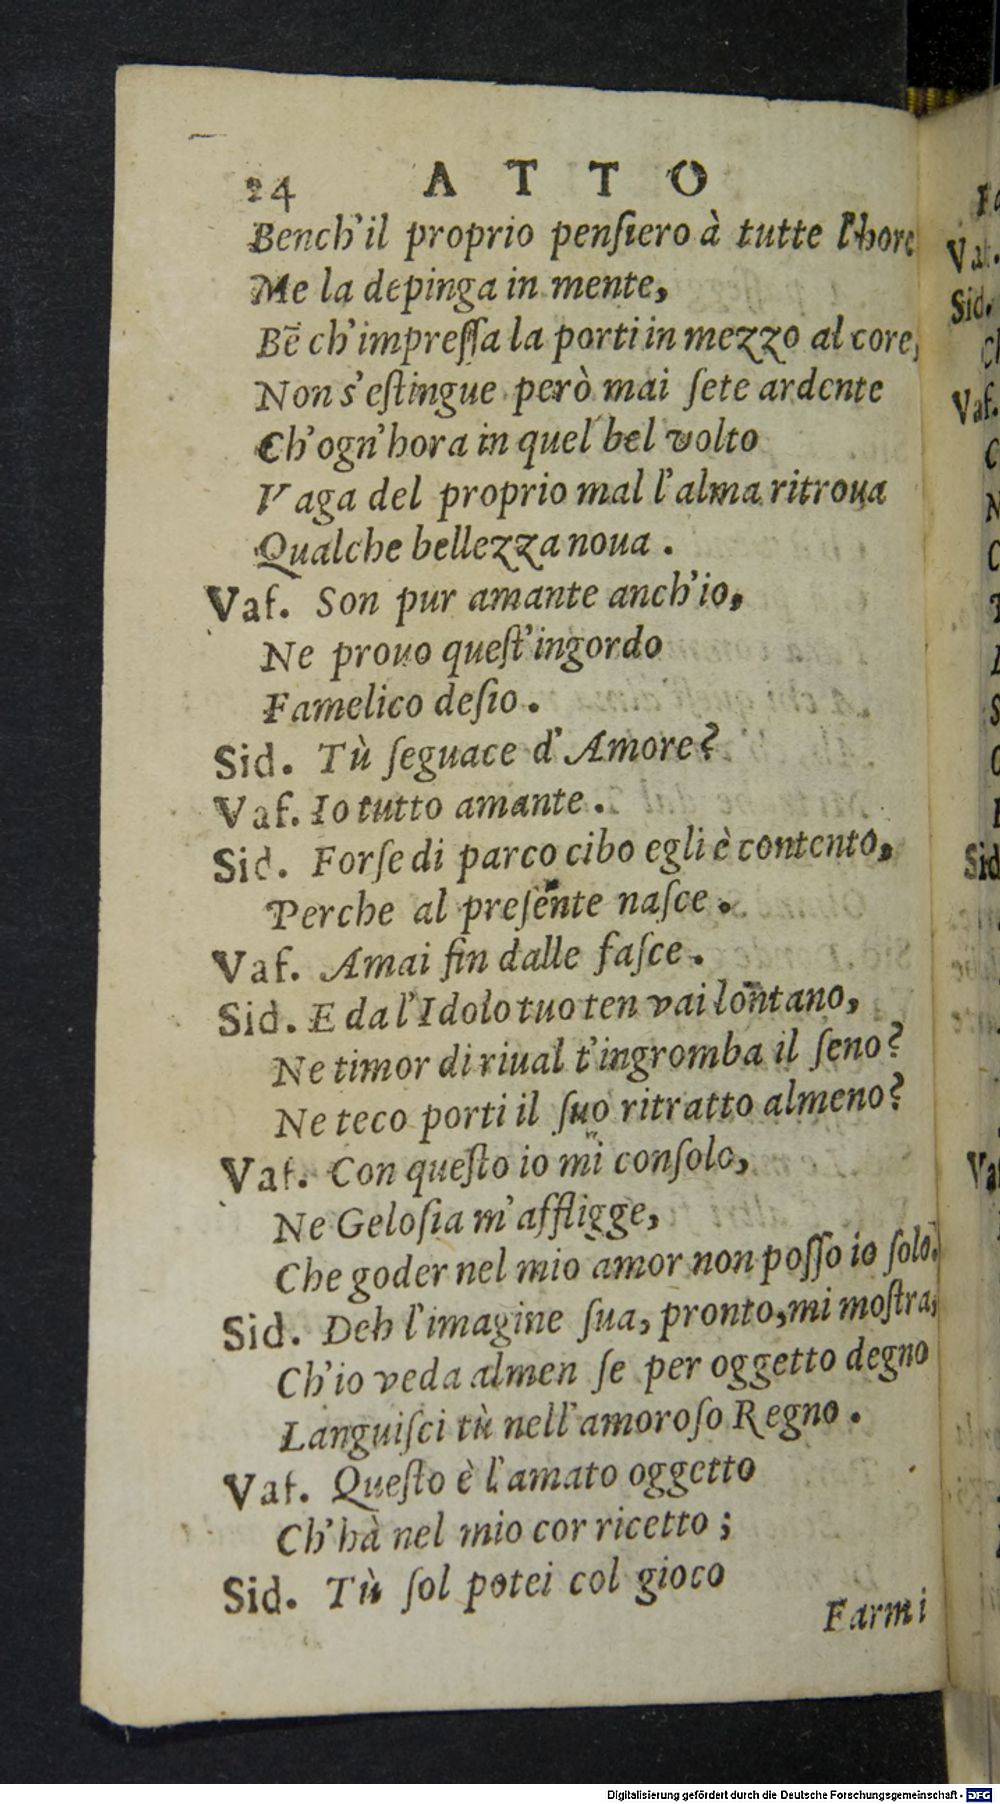 24 ATTO
Bench'il proprio penſiero à tutte l'hore
Me la depinga in mente,
Bē ch'impreſſa la porti in mezzo al core,
Non s'eſtingue però mai ſete ardente
Ch'ogn'hora in quel bel volto
Vaga del proprio mal l'alma ritroua
Qualche bellezza noua.
Vaf. Son pur amante anch'io,
Ne prouo queſt'ingordo
Famelico deſio.
Sid. Tù ſeguace d'Amore?
Vaf. Io tutto amante.
Sid. Forſe di parco cibo egli è contento,
Perche al preſente naſce.
Vaf. Amai fin dalle faſce.
Sid. E da l'Idolo tuo ten vai lontano,
Ne timor di riual t'ingromba il ſeno?
Ne teco porti il ſuo ritratto almeno?
Vaf. Con queſto io mi conſolo,
Ne Geloſia m'affligge,
Che goder nel mio amor non poſſo io ſolo.
Sid. Deh l'imagine ſua, pronto, mi moſtra,
Ch'io veda almen ſe per oggetto degno
Languiſci tù nell'amoroſo Regno.
Vaf. Queſto è l'amato oggetto
Ch'hà nel mio cor ricetto;
Sid. Tù ſol potei col gioco
Farmi
Vaf.
Sid.
Vaf.
Sid
Vaf
Digitalisierung gefördert durch die Deutsche Forschungsgemeinschaft - DFG